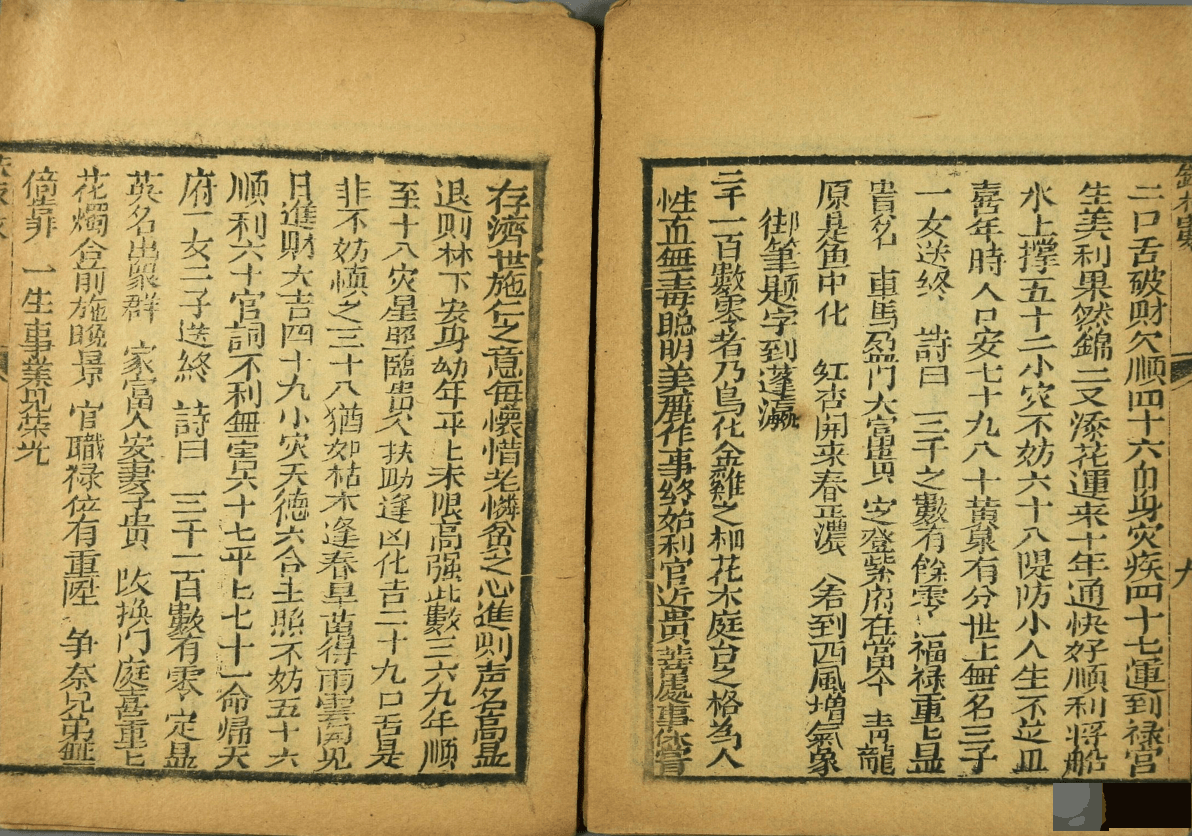 二口舌破財欠順四十六血身灾疾四十七運到禄宮
生美利果然錦上又添花運来十年通快好順利将船
水上撑五十二小灾不妨六十八隄防小人生不泣血
喜年時人口安七十九八十黄泉有分世上無名三子
一女送終 詩曰 三千之數有餘零 福禄重七显
貴名 車馬盈門大富貴 定登紫府在當今 青龍
原是鱼中化 紅杏開来春正濃 名到西風增氣象
御筆题字到蓬瀛
三千一百數零者乃鳥化金雞之相花木庭台之格為人
性直無毒聪明美麗作事終始利官近贵善處事体骨
存濟世施仁之意每懷惜老憐貧之心進則声名高显
退則林下安身幼年平上未限高强此數三六九年順
至十八灾星照臨貴人扶助逢凶化吉二十九口舌是
非不妨慎之三十八猶如枯木逢春旱苗得雨雲開見
日進財大吉四十九小灾天德六合主照不妨五十六
順利六十官詞不利無害六十七平七七十一命歸天
府一女二子送終 詩曰 三千一百數有零 定显
英名出衆群 家富人安妻子贵 改換门庭喜重七
花燭合前施晚景 官職禄位有重陞 争奈兄弟無
倚靠 一生事業見荣光
九